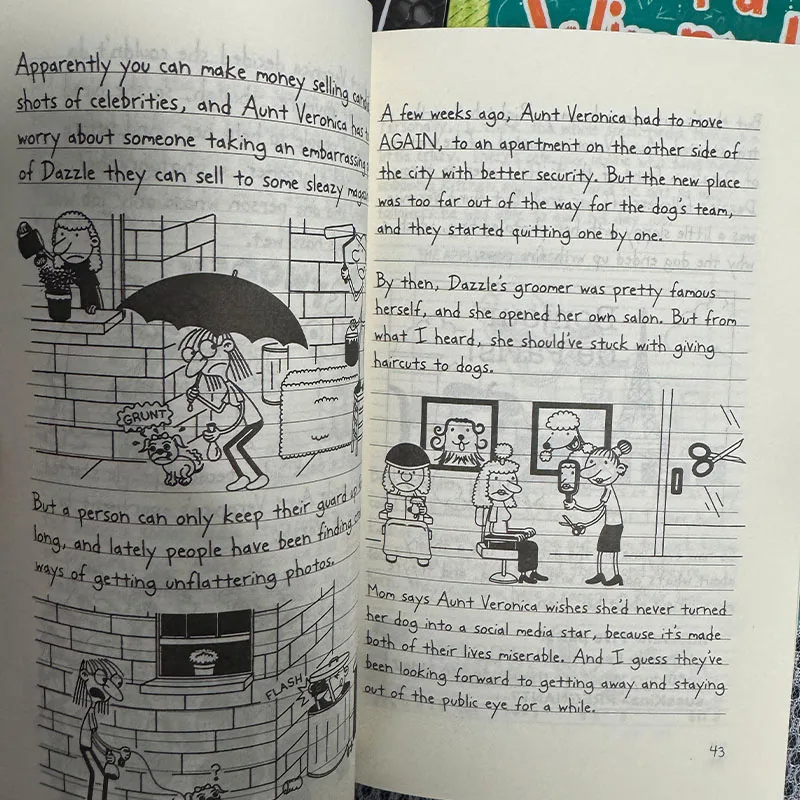 Apparently you can make money selling
shots of celebrities, and Aunt Veronica has
worry about someone taking an embarrassing
of Dazzle they can sell to some sleazy
GRUNT
But a person can only keep their guard up
long, and lately people have been finding
ways of getting unflattering photos.
FLASH
?
A few weeks ago, Aunt Veronica had to move
AGAIN, to an apartment on the other side of
the city with better security. But the new place
was too far out of the way for the dog's team,
and they started quitting one by one.
By then, Dazzle's groomer was pretty famous
herself, and she opened her own salon. But from
what I heard, she should've stuck with giving
haircuts to dogs.
Mom says Aunt Veronica wishes she'd never turned
her dog into a social media star, because it's made
both of their lives miserable. And I guess they've
been looking forward to getting away and staying
out of the public eye for a while.
43